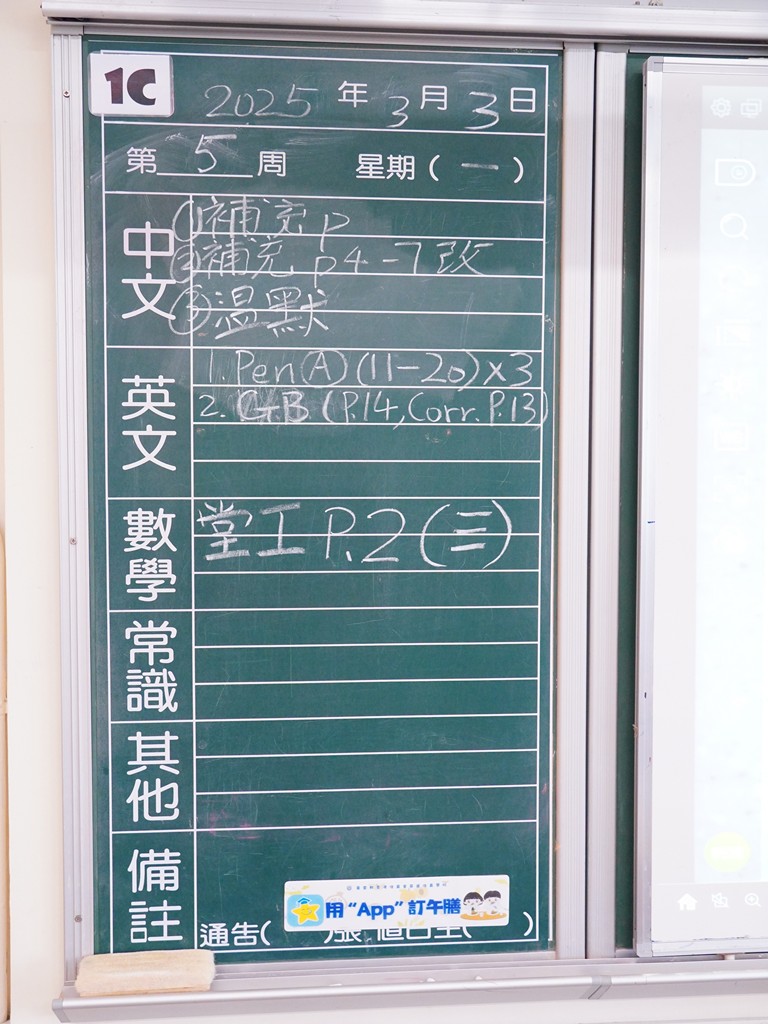 1C
2025 年 3 月 3 日
第 5 周 星期 ( 一 )
中文
①補充 p
②補充 p4-7 改
③溫默
英文
1. Pen Ⓐ (11-20) x3
2. GB (P.14, Corr. P.13)
數學
堂工 P.2 (三)
常識
其他
備註
用 “App” 訂午膳
通告( )張 值日生( )